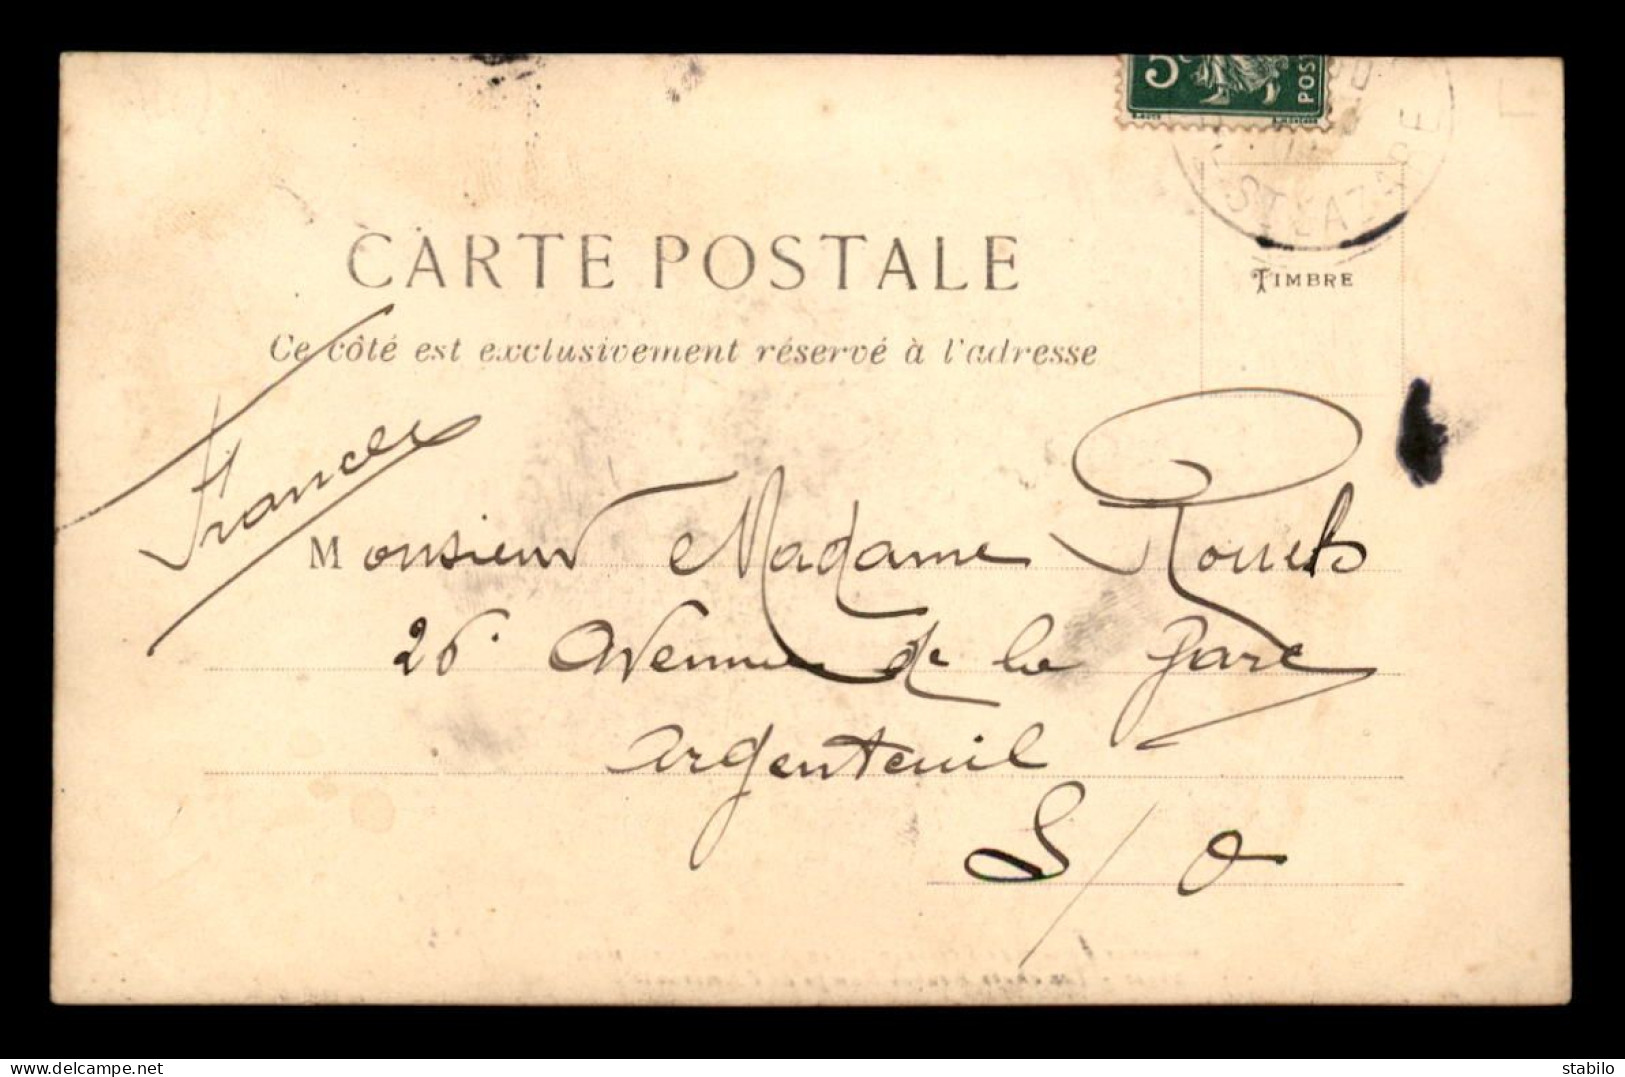 5c POS
ST LAZARE
CARTE POSTALE
TIMBRE
Ce côté est exclusivement réservé à l'adresse
France
Monsieur Madame
26. Avenue de la Gare
Argenteuil
S/O
delcampe.net
stabilo